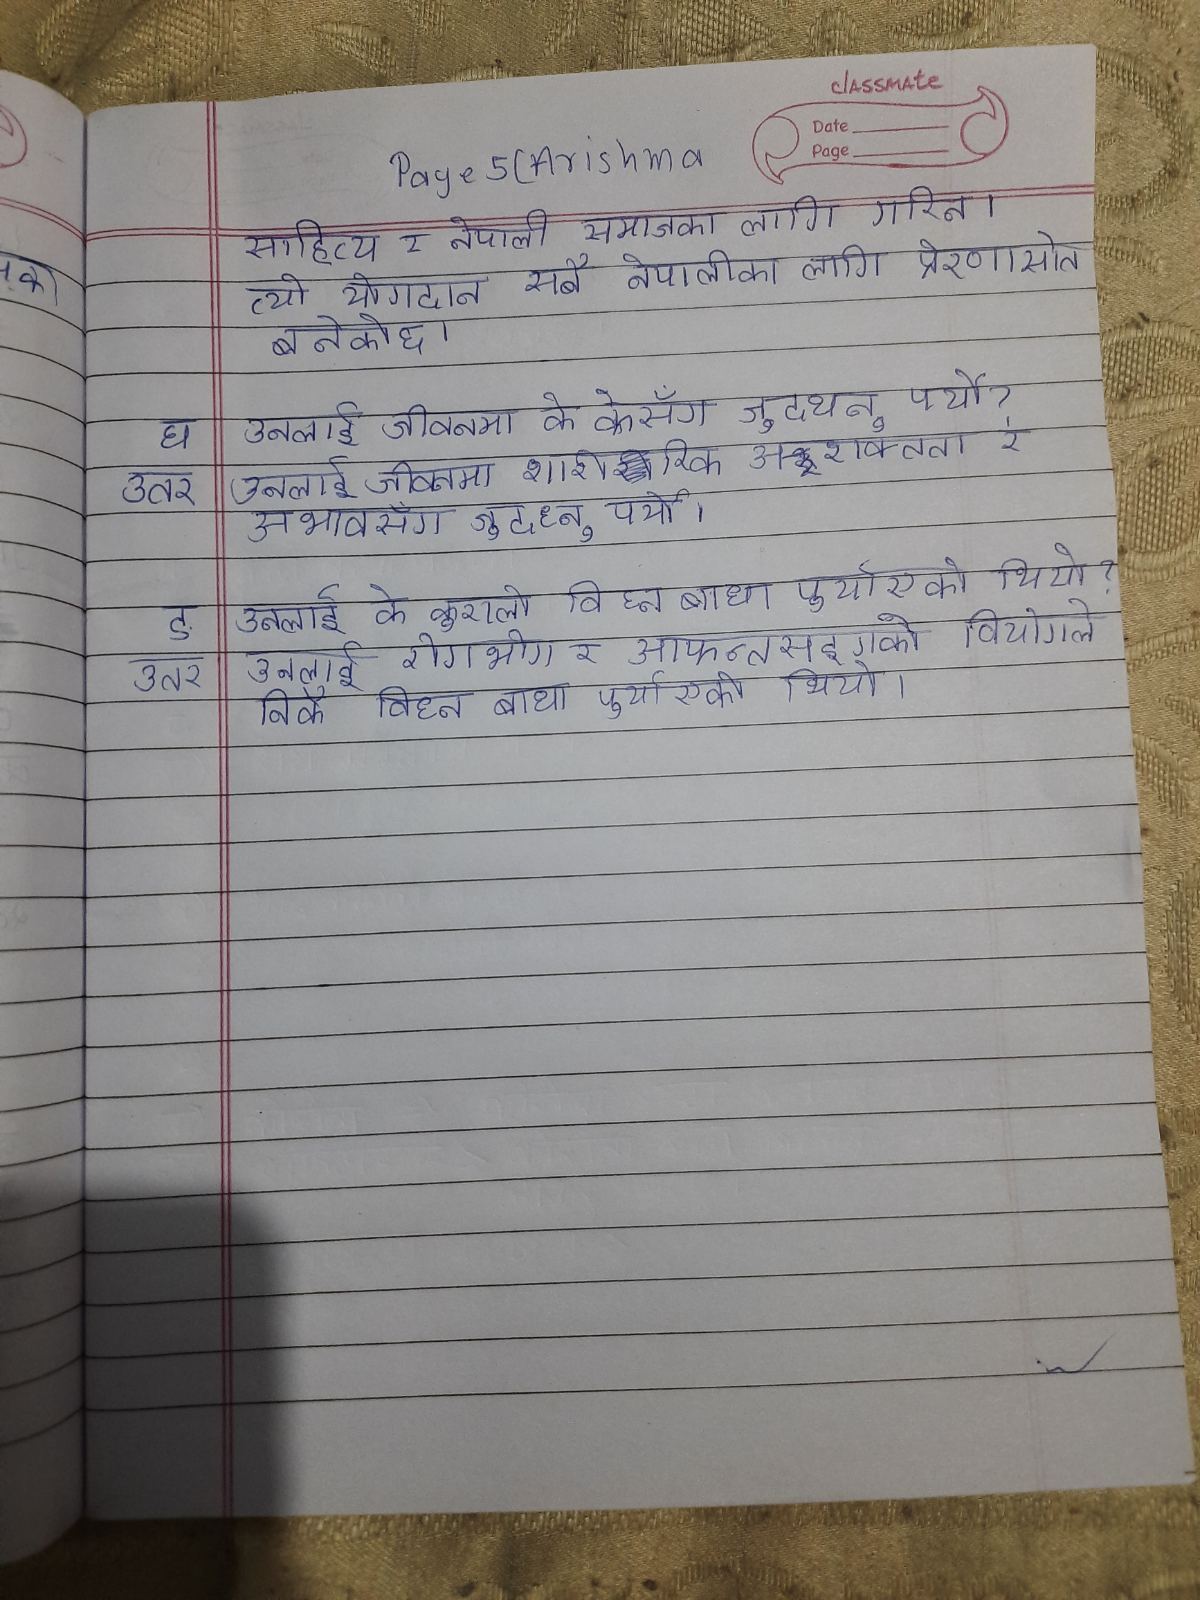 classmate
Date
Page
Page 5(Arishma
साहित्य र नेपाली समाजका लागि गरिन।
त्यो योगदान सबै नेपालीका लागि प्रेरणासोत
बनेकोछ।
घ उनलाई जीवनमा के केसँग जुदधनु पर्यो?
उतर उनलाई जीवनमा शारीरिक अशक्तता र
अभावसँग जुदधनु पर्यो।
ङ उनलाई के कुरालो विघ्न बाधा पुर्याएको थियो?
उतर उनलाई रोगभोग र आफन्तसङ्गको वियोगले
निकै विघ्न बाधा पुर्याएको थियो।